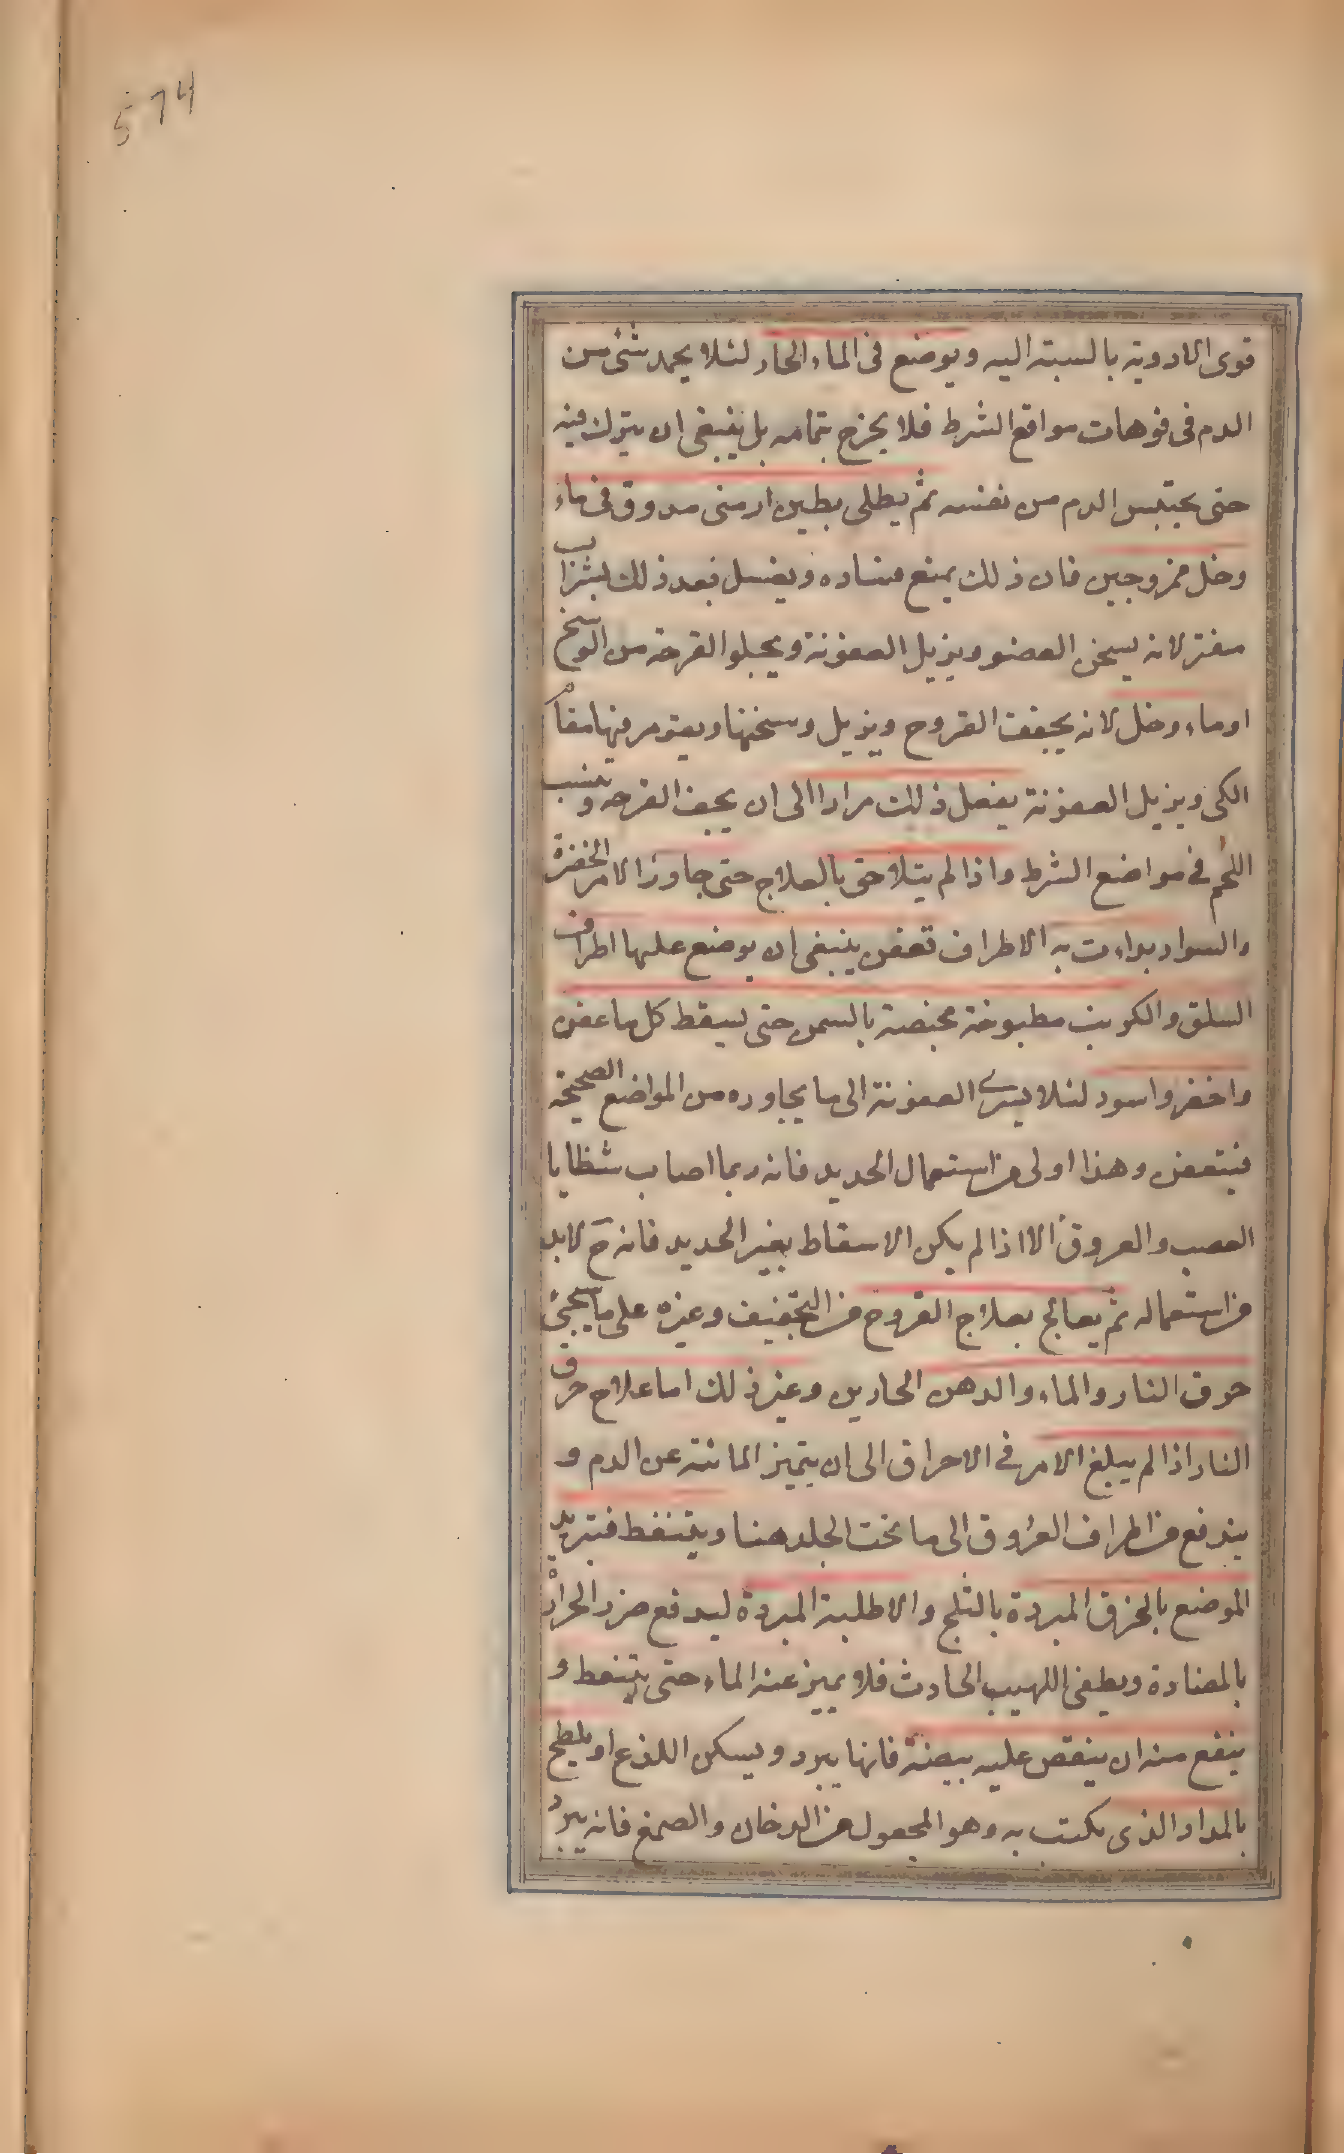 574
قوى الادوية بالنسبة اليه ويوضع فى الماء الحار لئلا يجمد شئ من
الدم فى فوهات مواقع الشرط فلا يخرج بتمامه بل ينبغى ان يترك فيه
حتى يحتبس الدم من نفسه ثم يطلى بطين ارمنى مدوق فى ماء
وخل ممزوجين فان ذلك يمنع فساده ويغسل بعد ذلك بشراب
مفتر لانه يسخن العضو ويزيل العفونة ويجلو القرحة من الوسخ
او ماء وخل لانه يجفف القروح ويزيل وسخها ويقوم فيها مقام
الكى ويزيل العفونة يفعل ذلك مرارا الى ان يجف القرحه وينبت
اللحم فى مواضع الشرط واذا لم يتلاحق بالعلاج حتى جاوز الامر الخضرة
والسواد بداءت به الاطراف تعفن ينبغى ان يوضع عليها اطراف
السلق والكرنب مطبوخة مخبصة بالسمن حتى يسقط كل ما عفن
واخضر واسود لئلا يسرى العفونة الى ما يجاوره من المواضع الصحيحة
فيتعفن وهذا اولى من استعمال الحديد فانه ربما اصاب شظايا
العصب والعروق الا اذا لم يكن الاسقاط بغير الحديد فانه ح لابد
من استعماله ثم يعالج بعلاج القروح من التجفيف وغيره على ما سيجئ
حرق النار والماء والدهن الحارين وغير ذلك اما علاج حرق
النار اذا لم يبلغ الامر فى الاحراق الى ان يتميز المائية عن الدم و
يندفع من اطراف العروق الى ما تحت الجلد هنا ويتنفط فتبريد
الموضع بالخرق المبردة بالثلج والاطلية المبردة ليدفع ضرر الحرارة
بالمضادة ويطفى اللهيب الحادث فلا يميز عنه الماء حتى يتنفط و
ينفع منه ان ينقض عليه بيضة فانها يبرد ويسكن اللذع او يلطخ
بالمداد الذى يكتب به وهو المجعول من الدخان والصمغ فانه يبرد